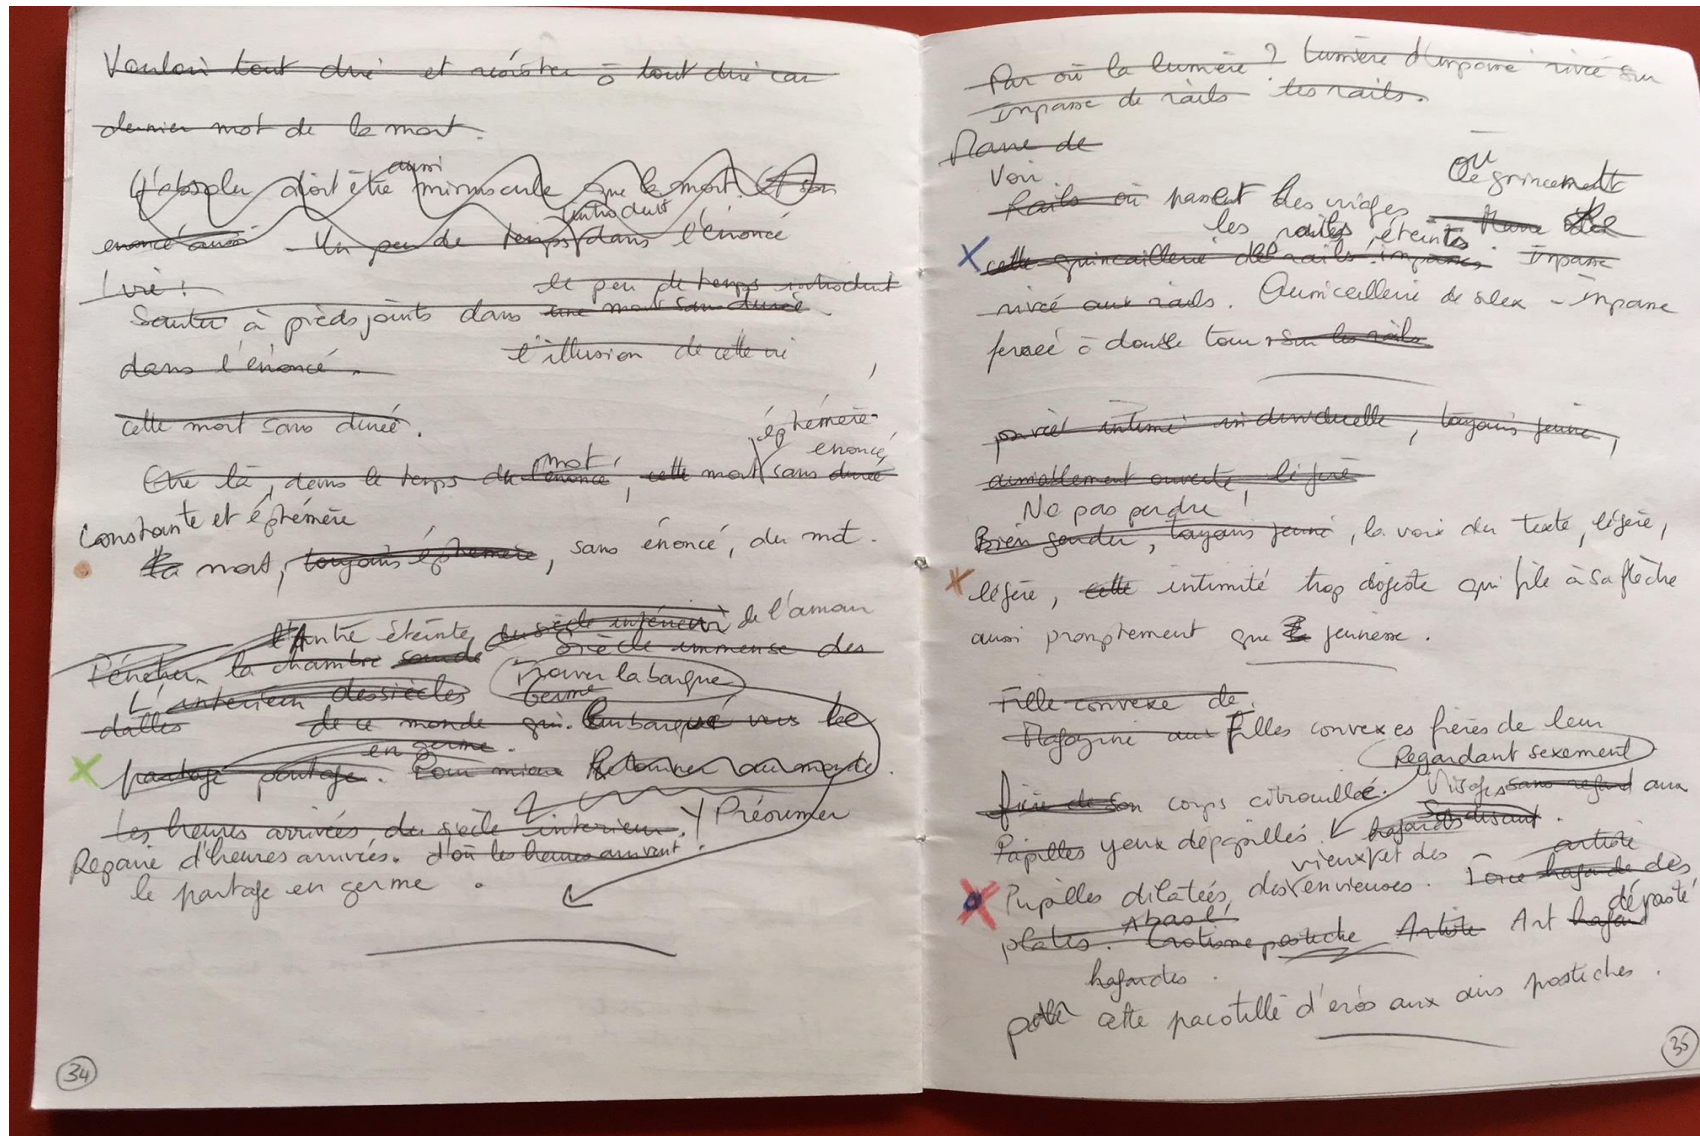 Vouloir tout dire et résister à tout dire car
dernier mot de la mort.
aussi
L'absolu doit être minuscule que la mort. Et son
introduit
énoncé aussi Un peu de temps dans l'énoncé
Lire !
le peu de temps introduit
Sauter à pieds joints dans une mort sans durée.
dans l'énoncé. l'illusion de cette vie
cette mort sans durée.
éphémère
mot, énoncé,
Etre là, dans le temps de l'énoncé, cette mort sans durée
Constante et éphémère
La mort, toujours éphémère, sans énoncé, du mot.
l'Antre éteinte, du siècle intérieur de l'amour
Pénétrer la chambre siècle immense des
L'intérieur des siècles Trouver la barque
Germe
dalles de ce monde qui. Embarqué vers le
en germe.
partage partage. Pour mieux Retourner au monde.
Les heures arrivées du siècle intérieur. Présumer
Repaire d'heures arrivées. d'où les heures arrivent.
le partage en germe.
34
Par où la lumière ? Lumière d'impasse rivée sur
Impasse de rails les rails.
Rame de
Voir où le grincement
Rails où passent les visages
les rails éteints. Rame
cette quincaillerie de rails impasses Impasse
rivée aux rails. Quincaillerie de silex - Impasse
fermée à double tour sur les rails
intime individuelle, toujours jeune,
aimablement ouverte, légère
Ne pas perdre,
Bien garder, toujours jeune, la voix du texte, légère,
légère, cette intimité trop digeste qui file à sa flèche
aussi promptement que jeunesse.
Fille convexe de.
Magazine aux filles convexes fières de leur
Regardant sexement
fière de son corps citrouillée. Visages sans regard aux
Papilles yeux dépapillés. hagards disant.
vieux et des artiste
Pupilles dilatées, des envieuses. hagarde des
Abas l' dépasté
plates. Erotisme postiche Artiste Art hagard
hagardes.
cette pacotille d'eros aux airs postiches.
35